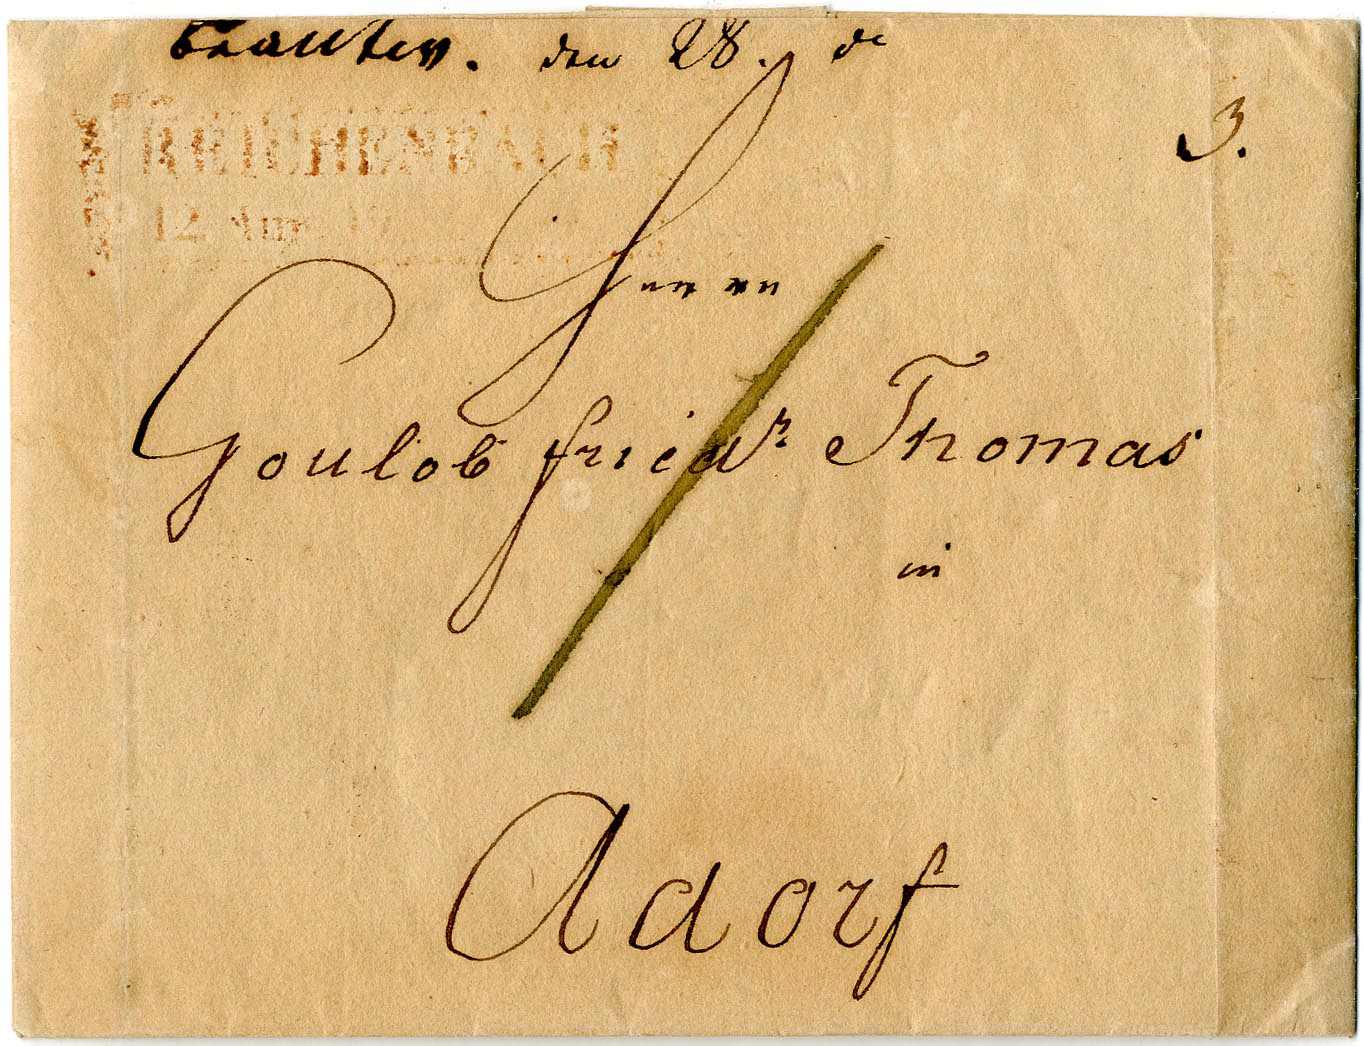 den 28. d
REICHENBACH
3.
12 Aug
Herrn
Gottlob Friedr Thomas
in
Adorf